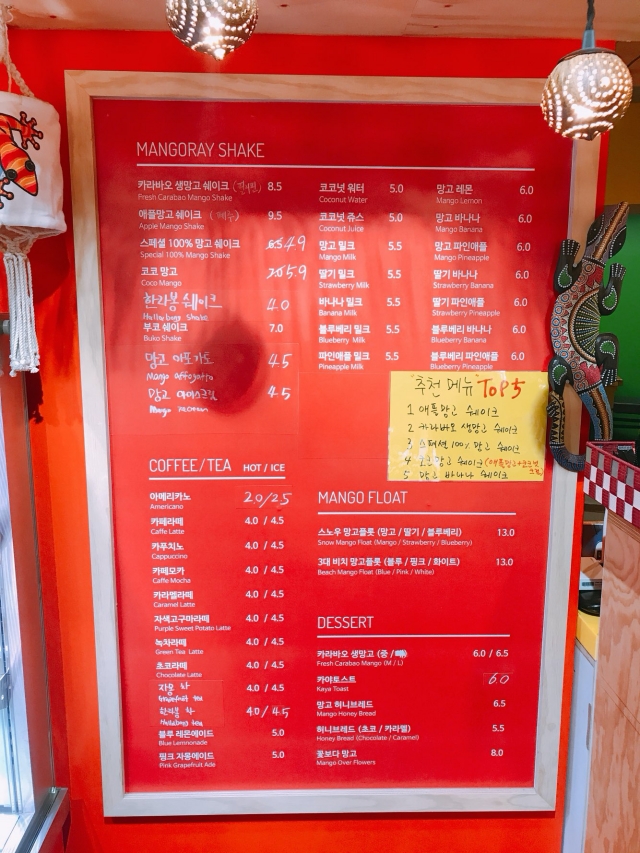 MANGORAY SHAKE
카라바오 생망고 쉐이크 8.5
Fresh Carabao Mango Shake
애플망고 쉐이크 9.5
Apple Mango Shake
스페셜 100% 망고 쉐이크 4.9
Special 100% Mango Shake
코코 망고 5.9
Coco Mango
한라봉 쉐이크 4.0
Hallabong Shake
부코 쉐이크 7.0
Buko Shake
망고 아포가토 4.5
Mango affogato
망고 아이스크림 4.5
Mango
코코넛 워터 5.0
Coconut Water
코코넛 쥬스 5.0
Coconut Juice
망고 밀크 5.5
Mango Milk
딸기 밀크 5.5
Strawberry Milk
바나나 밀크 5.5
Banana Milk
블루베리 밀크 5.5
Blueberry Milk
파인애플 밀크 5.5
Pineapple Milk
망고 레몬 6.0
Mango Lemon
망고 바나나 6.0
Mango Banana
망고 파인애플 6.0
Mango Pineapple
딸기 바나나 6.0
Strawberry Banana
딸기 파인애플 6.0
Strawberry Pineapple
블루베리 바나나 6.0
Blueberry Banana
블루베리 파인애플 6.0
Blueberry Pineapple
"추천 메뉴" TOP 5
1 애플망고 쉐이크
2 카라바오 생망고 쉐이크
3 스페셜 100% 망고 쉐이크
4 코코망고 쉐이크
5 망고 바나나 쉐이크
COFFEE/TEA HOT / ICE
아메리카노 2.0/2.5
Americano
카페라떼 4.0 / 4.5
Caffe Latte
카푸치노 4.0 / 4.5
Cappuccino
카페모카 4.0 / 4.5
Caffe Mocha
카라멜라떼 4.0 / 4.5
Caramel Latte
자색고구마라떼 4.0 / 4.5
Purple Sweet Potato Latte
녹차라떼 4.0 / 4.5
Green Tea Latte
초코라떼 4.0 / 4.5
Chocolate Latte
자몽 차 4.0 / 4.5
Grapefruit tea
한라봉 차 4.0/4.5
Hallabong tea
블루 레몬에이드 5.0
Blue Lemonnade
핑크 자몽에이드 5.0
Pink Grapefruit Ade
MANGO FLOAT
스노우 망고플롯 (망고 / 딸기 / 블루베리) 13.0
Snow Mango Float (Mango / Strawberry / Blueberry)
3대 비치 망고플롯 (블루 / 핑크 / 화이트) 13.0
Beach Mango Float (Blue / Pink / White)
DESSERT
카라바오 생망고 (중 / 6.0 / 6.5
Fresh Carabao Mango (M / L)
카야토스트 6.0
Kaya Toast
망고 허니브레드 6.5
Mango Honey Bread
허니브레드 (초코 / 카라멜) 5.5
Honey Bread (Chocolate / Caramel)
꽃보다 망고 8.0
Mango Over Flowers